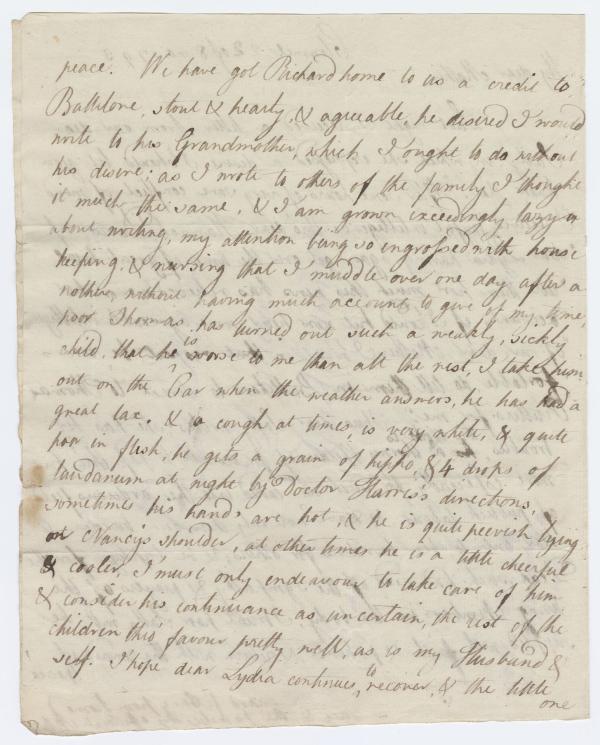 peace. We have got Richard home to us a credit to
Ballitore, stout & hearty, & agreeable, he desired I would
write to his Grandmother, which I ought to do without
his desire; as I wrote to others of the family I thought
it much the same, & I am grown exceedingly lazy
about writing, my attention being so engrossed with house
keeping, & nursing that I muddle over one day after a
nother, without having much account to give of my time,
poor Thomas has turned out such a weakly, sickly
child, that he is worse to me than all the rest, I take him
out on the Car when the weather answers, he has had a
great lax, & a cough at times, is very white, & quite
poor in flesh, he gets a grain of hippo, & 4 drops of
laudanum at night by Doctor Harris's directions,
sometimes his hands are hot, & he is quite peevish lying
on Nancy's shoulder, at other times he is a little cheerful
& cooler, I must only endeavour to take care of him
& consider his continuance as uncertain, the rest of the
children tho' favour pretty well, as is my Husband &
self. I hope dear Lydia continues to recover, & the little
one